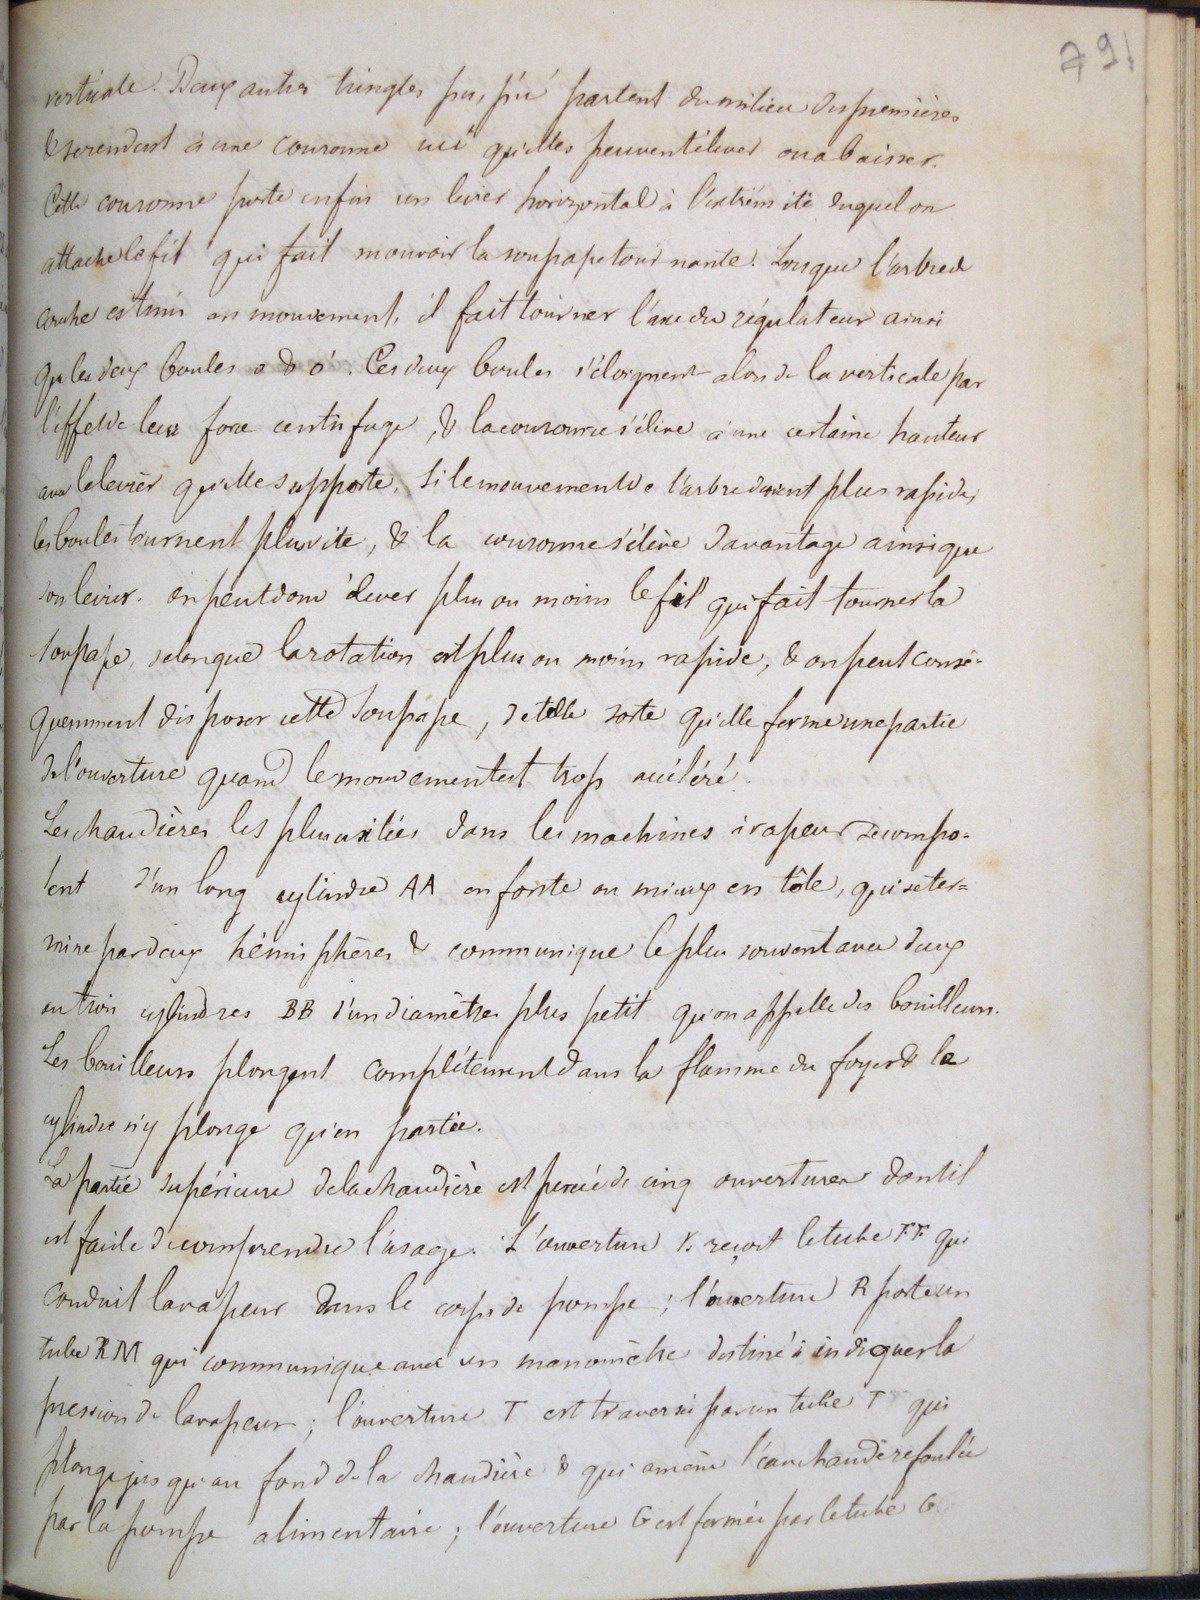 79!
verticale. Deux autres tringles pu, p'u' partent du milieu des premières
& se rendent à une couronne uu' qu'elles peuvent élever ou abaisser.
Cette couronne porte enfin un levier horizontal à l'extrémité duquel on
attache le fil qui fait mouvoir la soupape tournante. Lorsque l'arbre de
couche est mis en mouvement, il fait tourner l'axe du régulateur ainsi
que les deux boules o & o'. Ces deux boules s'éloignent alors de la verticale par
l'effet de leur force centrifuge, & la couronne s'élève à une certaine hauteur
avec le levier qu'elle supporte. Si le mouvement de l'arbre devient plus rapide,
les boules tournent plus vite, & la couronne s'élève davantage ainsi que
son levier. on peut donc élever plus ou moins le fil qui fait tourner la
soupape, selon que la rotation est plus ou moins rapide, & on peut consé-
quemment disposer cette soupape, de telle sorte qu'elle ferme une partie
de l'ouverture quand le mouvement est trop accéléré.
Les chaudières les plus usitées dans les machines à vapeur se compo=
sent d'un long cylindre AA en fonte ou mieux en tôle, qui se ter=
mine par deux hémisphères & communique le plus souvent avec deux
ou trois cylindres BB d'un diamètre plus petit qu'on appelle des bouilleurs.
Les bouilleurs plongent complètement dans la flamme du foyer & le
cylindre n'y plonge qu'en partie.
La partie supérieure de la chaudière est percée de cinq ouvertures dont il
est facile de comprendre l'usage. L'ouverture K reçoit le tube FF qui
conduit la vapeur dans le corps de pompe; l'ouverture R porte un
tube RM qui communique avec un manomètre destiné à indiquer la
pression de la vapeur; l'ouverture T est traversée par un tube T qui
plonge jusqu'au fond de la chaudière & qui amène l'eau chaude refoulée
par la pompe alimentaire; l'ouverture G est formée par le tube G